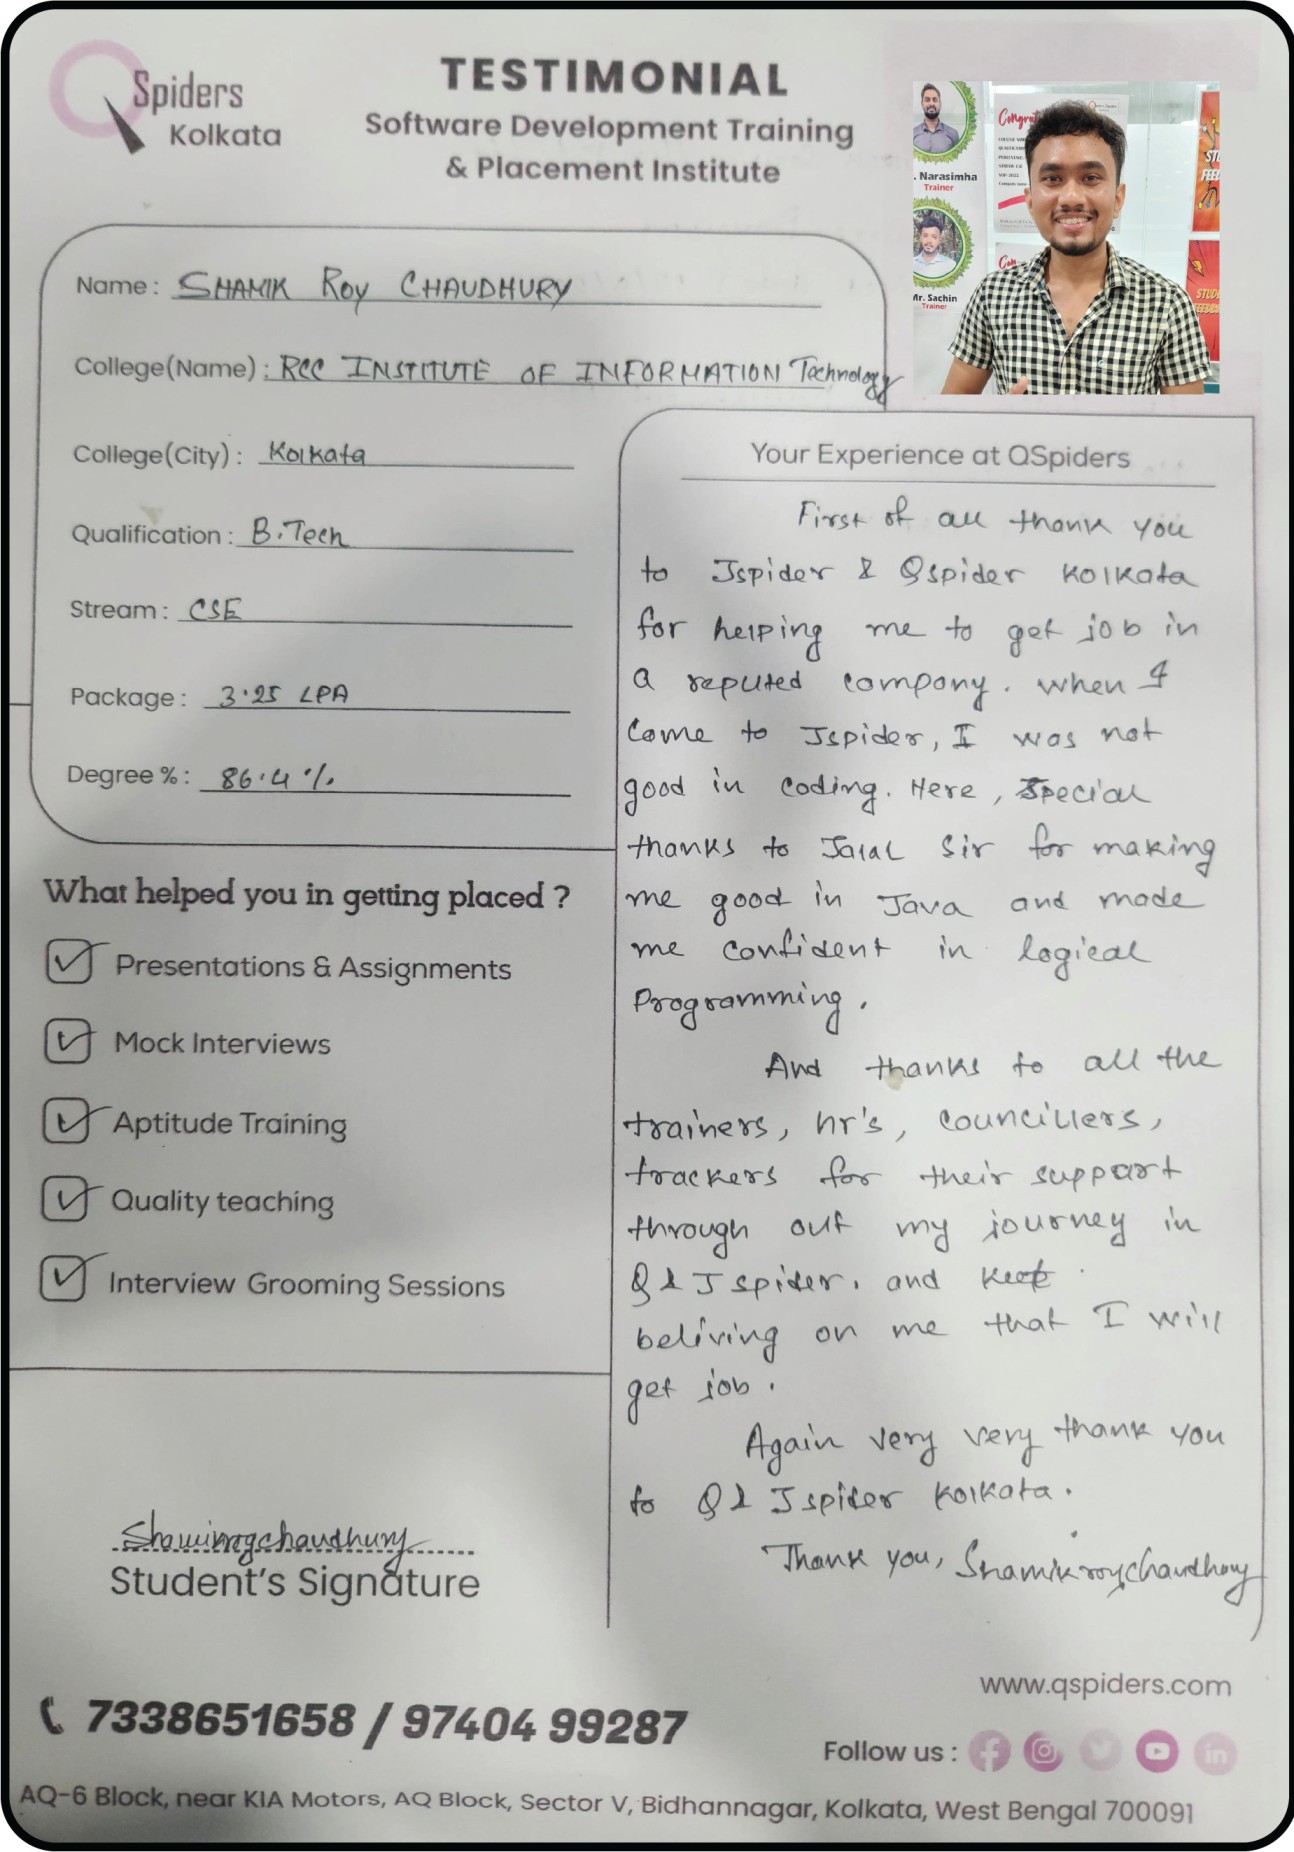 QSpiders
Kolkata
TESTIMONIAL
Software Development Training
& Placement Institute
Congrat
. Narasimha
Trainer
Con
Mr. Sachin
Trainer
Name : SHAMIK Roy CHAUDHURY
College(Name) : RCC INSTITUTE OF INFORMATION Technology
College(City) : Kolkata
Qualification : B.Tech
Stream : CSE
Package : 3.25 LPA
Degree % : 86.4 %
What helped you in getting placed ?
Presentations & Assignments
Mock Interviews
Aptitude Training
Quality teaching
Interview Grooming Sessions
Shamikroychaudhury
Student's Signature
Your Experience at QSpiders
First of all thank you
to Jspider & Qspider Kolkata
for helping me to get job in
a reputed company. When I
Come to Jspider, I was not
good in coding. Here, Special
thanks to Jalal Sir for making
me good in Java and made
me confident in logical
Programming.
And thanks to all the
trainers, hr's, councillers,
trackers for their support
through out my journey in
Q & J spider. and keep
beliving on me that I will
get job.
Again very very thank you
to Q & J spider Kolkata.
Thank you, Shamikroychaudhury
7338651658 / 97404 99287
www.qspiders.com
Follow us :
AQ-6 Block, near KIA Motors, AQ Block, Sector V, Bidhannagar, Kolkata, West Bengal 700091